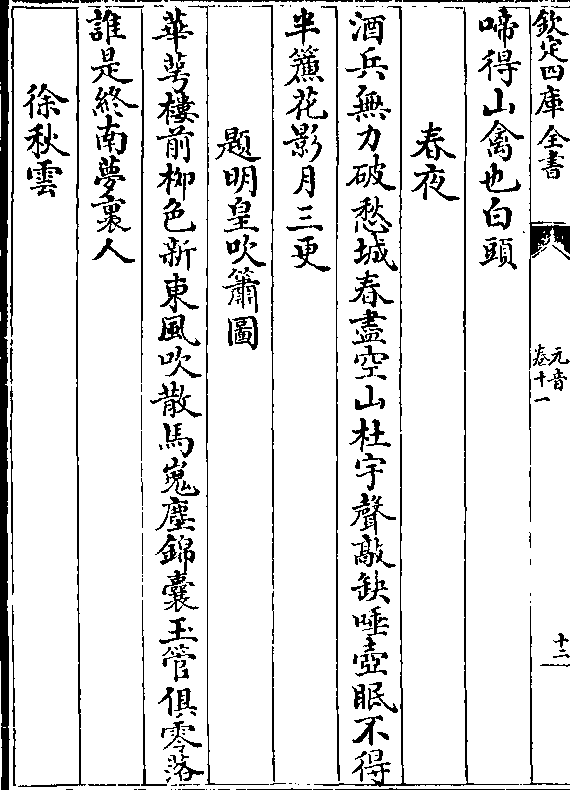 欽定四庫全書
元音
卷十一
十二
啼得山禽也白頭
春夜
酒兵無力破愁城春盡空山杜宇聲敲缺唾壺眠不得
半簾花影月三更
題明皇吹簫圖
華萼樓前柳色新東風吹散馬嵬塵錦囊玉管俱零落
誰是終南夢裏人
徐秋雲